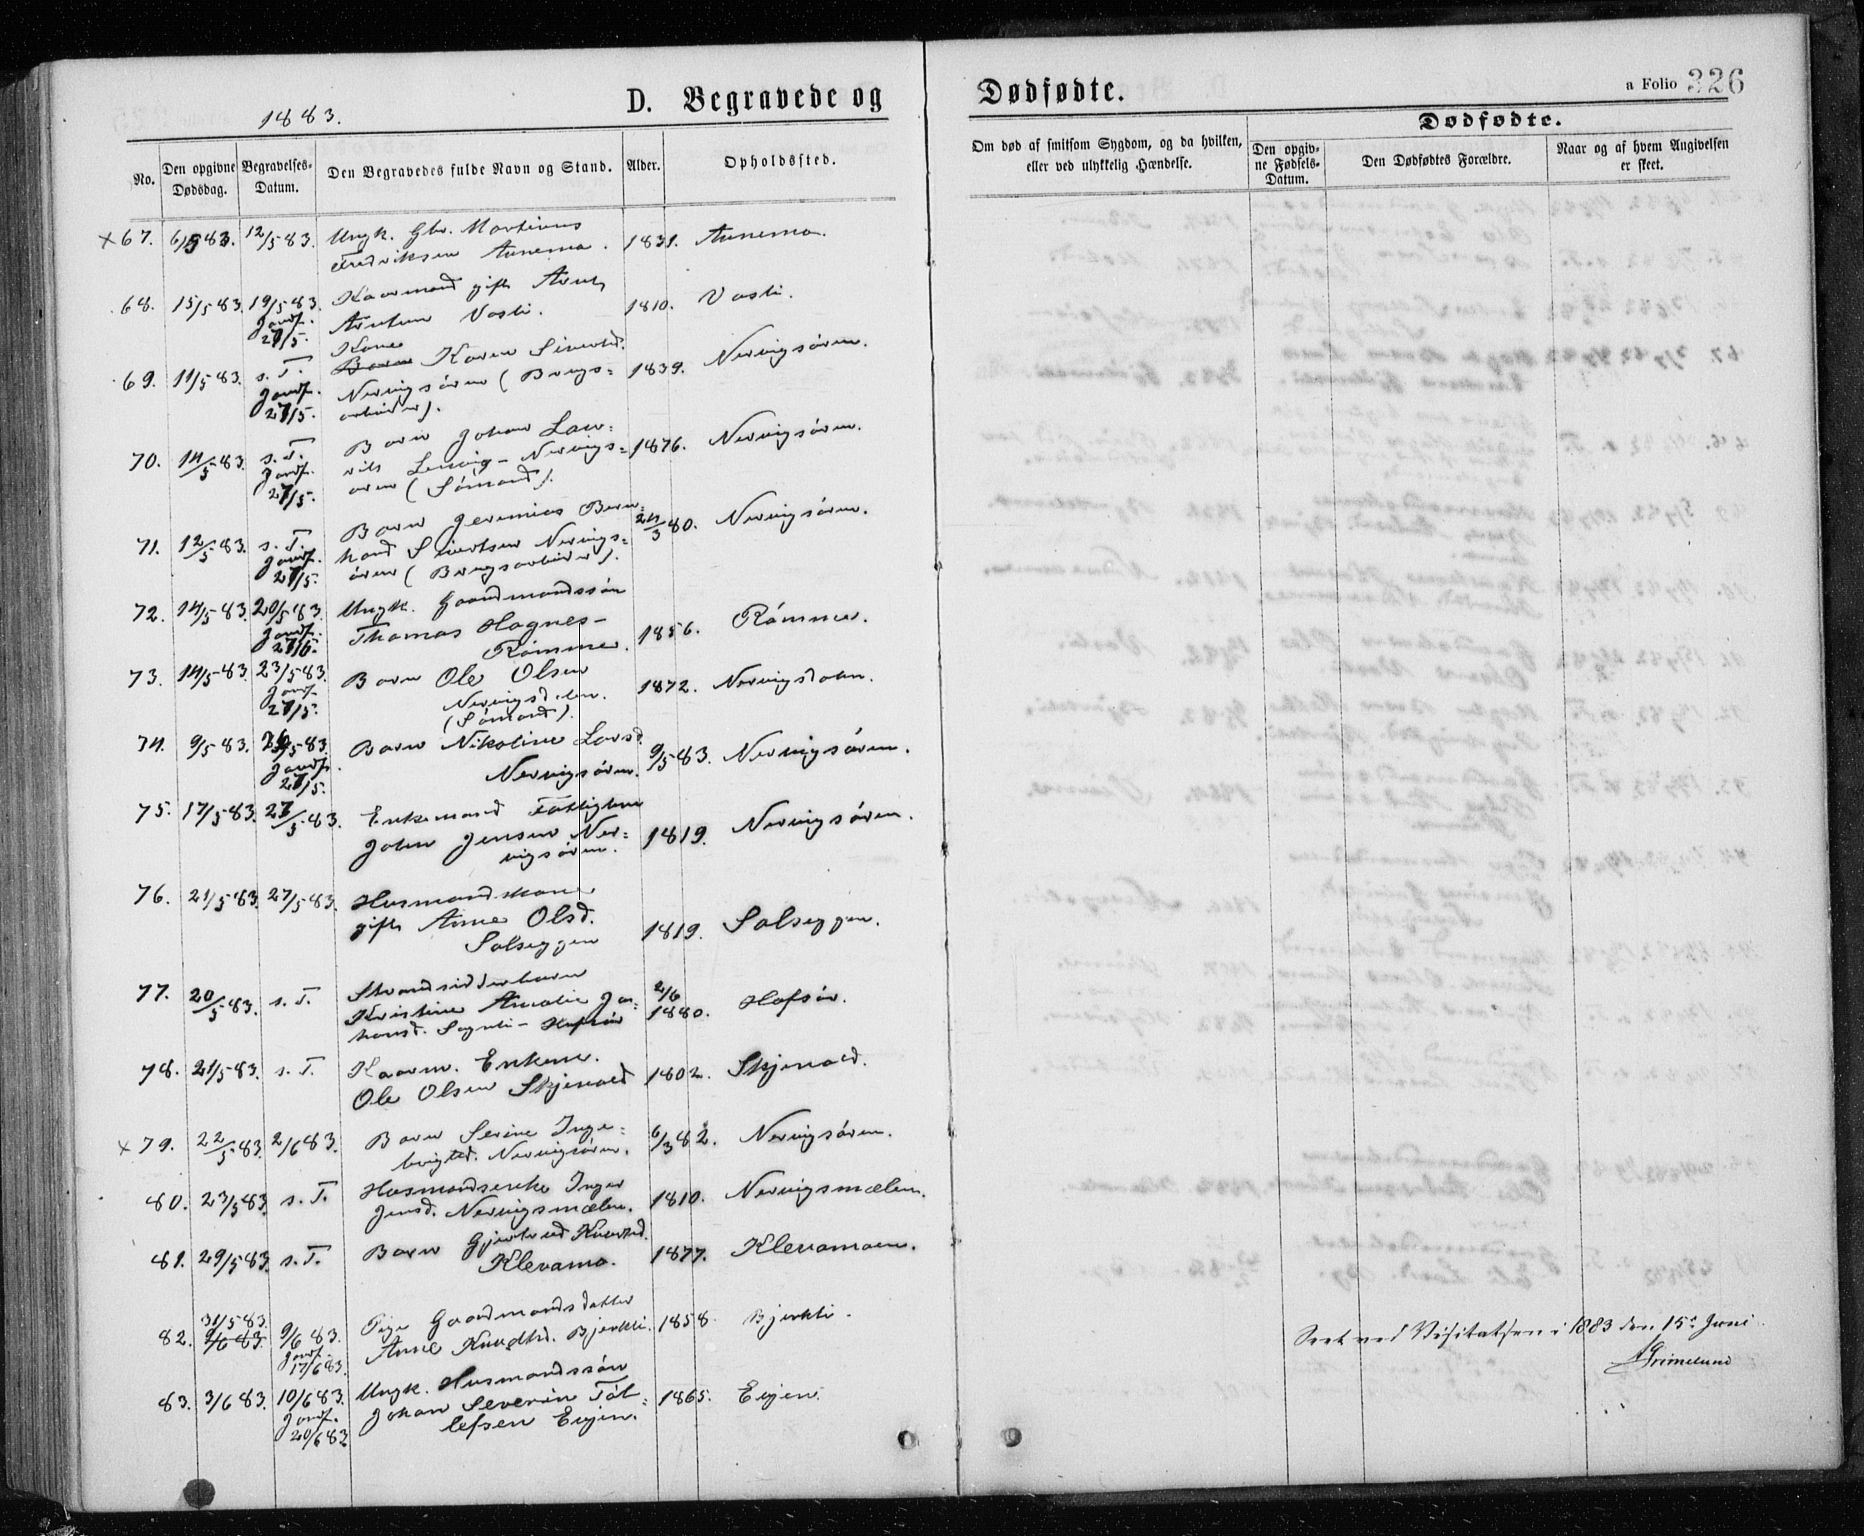 1883.
D. Begravede og
Dødfødte.
a Folio 326
No.
Den opgivne Dødsdag.
Begravelses-Datum.
Den Begravedes fulde Navn og Stand.
Alder.
Opholdssted.
Om død af smitsom Sygdom, og da hvilken, eller ved ulykkelig Hændelse.
Dødfødte.
Den opgiv-ne Fødsels-Datum.
Den Dødfødtes Forældre.
Naar og af hvem Angivelsen er skeet.
×67. 6/5 83. 12/5 83. Ungk. Gbr. Martinus 1831. Aunemo.
Fredriksen Aunemo.
68. 15/5 83. 19/5 83. Kaarmand gift Arnt 1810. Vasli.
Jordf. 27/5. Arntsen Vasli.
Kone
69. 11/5 83. s. T. Barn Karen Sivertsd. 1839. Nervigsøren.
Jordf. 27/5. Nervigsøren (Brugs=
arbeider).
70. 14/5 83. s. T. Barn Johan Lau= 1876. Nervigsøren.
Jordf. 27/5. rits Lervig - Nervigs=
øren (Sømand).
71. 12/5 83. s. T. Barn Jeremias Bern= 24/3 80. Nervigsøren.
Jordf. 27/5. hard Sivertsen Nervigs=
øren (Brugsarbeider).
72. 14/5 83. 20/5 83. Ungk. Gaardmandssøn 1856. Rømme.
Jordf. 27/5. Thomas Hagnes-
Rømme.
73. 14/5 83. 23/5 83. Barn Ole Olsen 1872. Nervigsdalen.
Jordf. 27/5. Nervigsdalen.
(Sømand).
74. 9/5 83. 26/5 83. Barn Nikoline Larsd. 9/5 83. Nervigsøren.
Jordf. 27/5. Nervigsøren.
75. 17/5 83. 27/5 83. Enkemand Fattiglem 1819. Nervigsøren.
John Jensen Ner=
vigsøren.
76. 21/5 83. 27/5 83. Husmandskone 1819. Solseggen.
gift Anne Olsd.
Solseggen
77. 20/5 83. s. T. Strandsidderbarn 2/6 1880. Hofsør.
Kristine Amalie Jo=
hansd. Sognli - Hofsør
78. 21/5 83. s. T. Kaarm. Enkem. 1802. Skjenald.
Ole Olsen Skjenald
×79. 22/5 83. 2/6 83. Barn Serine Inge= 6/3 82. Nervigsøren.
brigtsd. Nervigsøren.
80. 23/5 83. s. T. Husmandsenke Inger 1810. Nervigsmælen.
Jensd. Nervigsmælen.
81. 29/5 83. s. T. Barn Gjertrud Knutsd. 1877. Klevamoen.
Klevamo.
82. 31/5 83. 9/6 83. Pige Gaardmandsdatter 1858. Bjerkli.
9/6 83. Jordf. 17/6 83. Anne Knudtsd. Bjerkli.
83. 3/6 83. 10/6 83. Ungk. Husmandssøn 1865. Evjen.
Jordf. 20/6 83. Johan Severin Tøl=
lefsen Evjen.
Seet ved Visitatsen i 1883 den 15de Juni
Grimelund